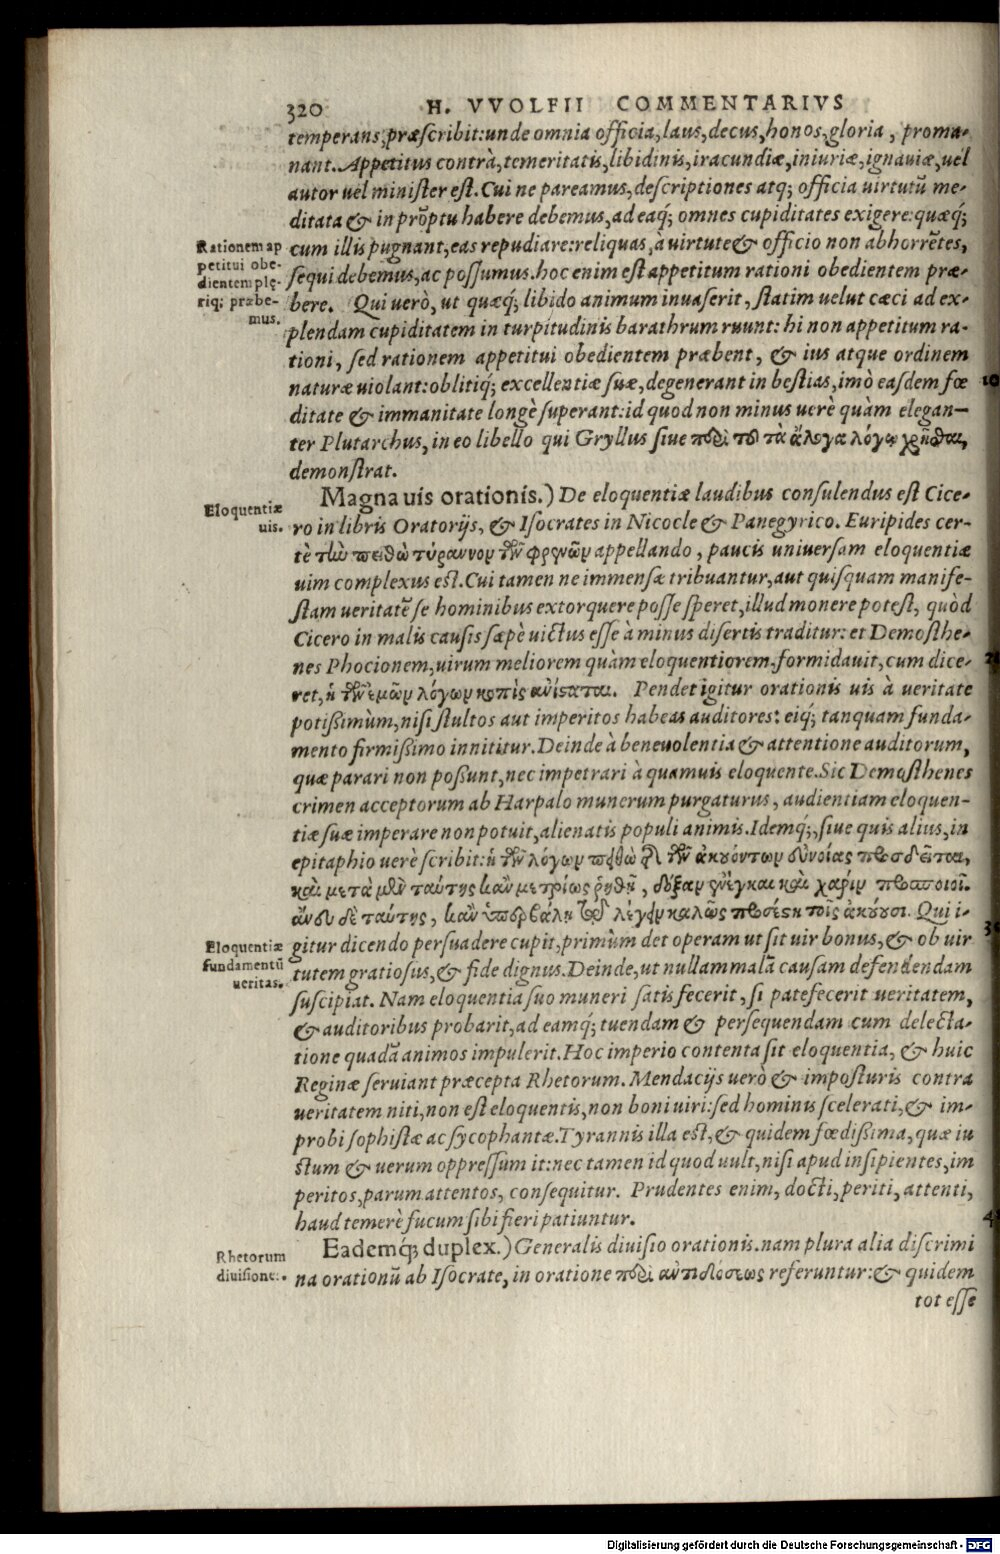 320 H. VVOLFII COMMENTARIVS
temperans, præscribit: unde omnia officia, laus, decus, honos, gloria, proma-
nant. Appetitus contrà, temeritatis, libidinis, iracundiæ, iniuriæ, ignauiæ, uel
autor uel minister est. Cui ne pareamus, descriptiones atq́; officia uirtutũ me-
ditata & in prõptu habere debemus, ad eaq́; omnes cupiditates exigere: quæq́;
Rationem ap
petitui obe-
dientem plę-
riq; præbe-
mus.
cum illis pugnant, eas repudiare: reliquas, à uirtute & officio non abhorrẽtes,
sequi debemus, ac possumus. hoc enim est appetitum rationi obedientem præ-
bere. Qui uerò, ut quæq́; libido animum inuaserit, statim uelut cæci ad ex-
plendam cupiditatem in turpitudinis barathrum ruunt: hi non appetitum ra-
tioni, sed rationem appetitui obedientem præbent, & ius atque ordinem
naturæ uiolant: oblitiq́; excellentiæ suæ, degenerant in bestias, imò easdem fœ 10
ditate & immanitate longè superant: id quod non minus uerè quàm elegan-
ter Plutarchus, in eo libello qui Gryllus siue πϵρὶ τοῦ τὰ ἄλογα λόγῳ χρῆσθαι,
demonstrat.
Magna uis orationis.) De eloquentiæ laudibus consulendus est Cice-
Eloquentiæ
uis.
ro in libris Oratorijs, & Isocrates in Nicocle & Panegyrico. Euripides cer-
tè τὴν πειθὼ τύραννον τῶν φρενῶν appellando, paucis uniuersam eloquentiæ
uim complexus est. Cui tamen ne immensæ tribuantur, aut quisquam manife-
stam ueritatẽ se hominibus extorquere posse speret, illud monere potest, quòd
Cicero in malis causis sæpè uictus esse à minus disertis traditur: et Demosthe-
nes Phocionem, uirum meliorem quàm eloquentiorem, formidauit, cum dice-
ret, ἡ τῶν ἐμῶν λόγων κοπὶς ἀνίσταται. Pendet igitur orationis uis à ueritate
potißimùm, nisi stultos aut imperitos habeas auditores: eiq́; tanquam funda-
mento firmißimo innititur. Deinde à beneuolentia & attentione auditorum,
quæ parari non possunt, nec impetrari à quamuis eloquente. Sic Demosthenes
crimen acceptorum ab Harpalo munerum purgaturus, audientiam eloquen-
tiæ suæ imperare non potuit, alienatis populi animis. Idemq́;, siue quis alius, in
epitaphio uerè scribit: ἡ τῶν λόγων πειθὼ τῆς τῶν ἀκουόντων εὐνοίας προσδεῖται,
καὶ μετὰ μὲν ταύτης κἂν μετρίως ῥηθῇ, δόξαν ἐνέγκαι καὶ χάριν προσποιεῖ.
ἄνευ δὲ ταύτης, κἂν ὑπερβάλῃ τῷ λέγειν καλῶς προσέστη τοῖς ἀκούουσι. Qui i-
Eloquentiæ
fundamentũ
ueritas.
gitur dicendo persuadere cupit, primùm det operam ut sit uir bonus, & ob uir
tutem gratiosus, & fide dignus. Deinde, ut nullam malã causam defendendam
suscipiat. Nam eloquentia suo muneri satis fecerit, si patefecerit ueritatem,
& auditoribus probarit, ad eamq́; tuendam & persequendam cum delecta-
tione quadã animos impulerit. Hoc imperio contenta sit eloquentia, & huic
Reginæ seruiant præcepta Rhetorum. Mendacijs uerò & imposturis contra
ueritatem niti, non est eloquentis, non boni uiri: sed hominis scelerati, & im-
probi sophistæ ac sycophantæ. Tyrannis illa est, & quidem fœdißima, quæ iu
stum & uerum oppressum it: nec tamen id quod uult, nisi apud insipientes, im
peritos, parum attentos, consequitur. Prudentes enim, docti, periti, attenti,
haud temerè fucum sibi fieri patiuntur.
Rhetorum
diuisione.
Eademq́; duplex.) Generalis diuisio orationis. nam plura alia discrimi
na orationũ ab Isocrate, in oratione πϵρὶ ἀντιδόσεως referuntur: & quidem
tot esse
Digitalisierung gefördert durch die Deutsche Forschungsgemeinschaft - DFG